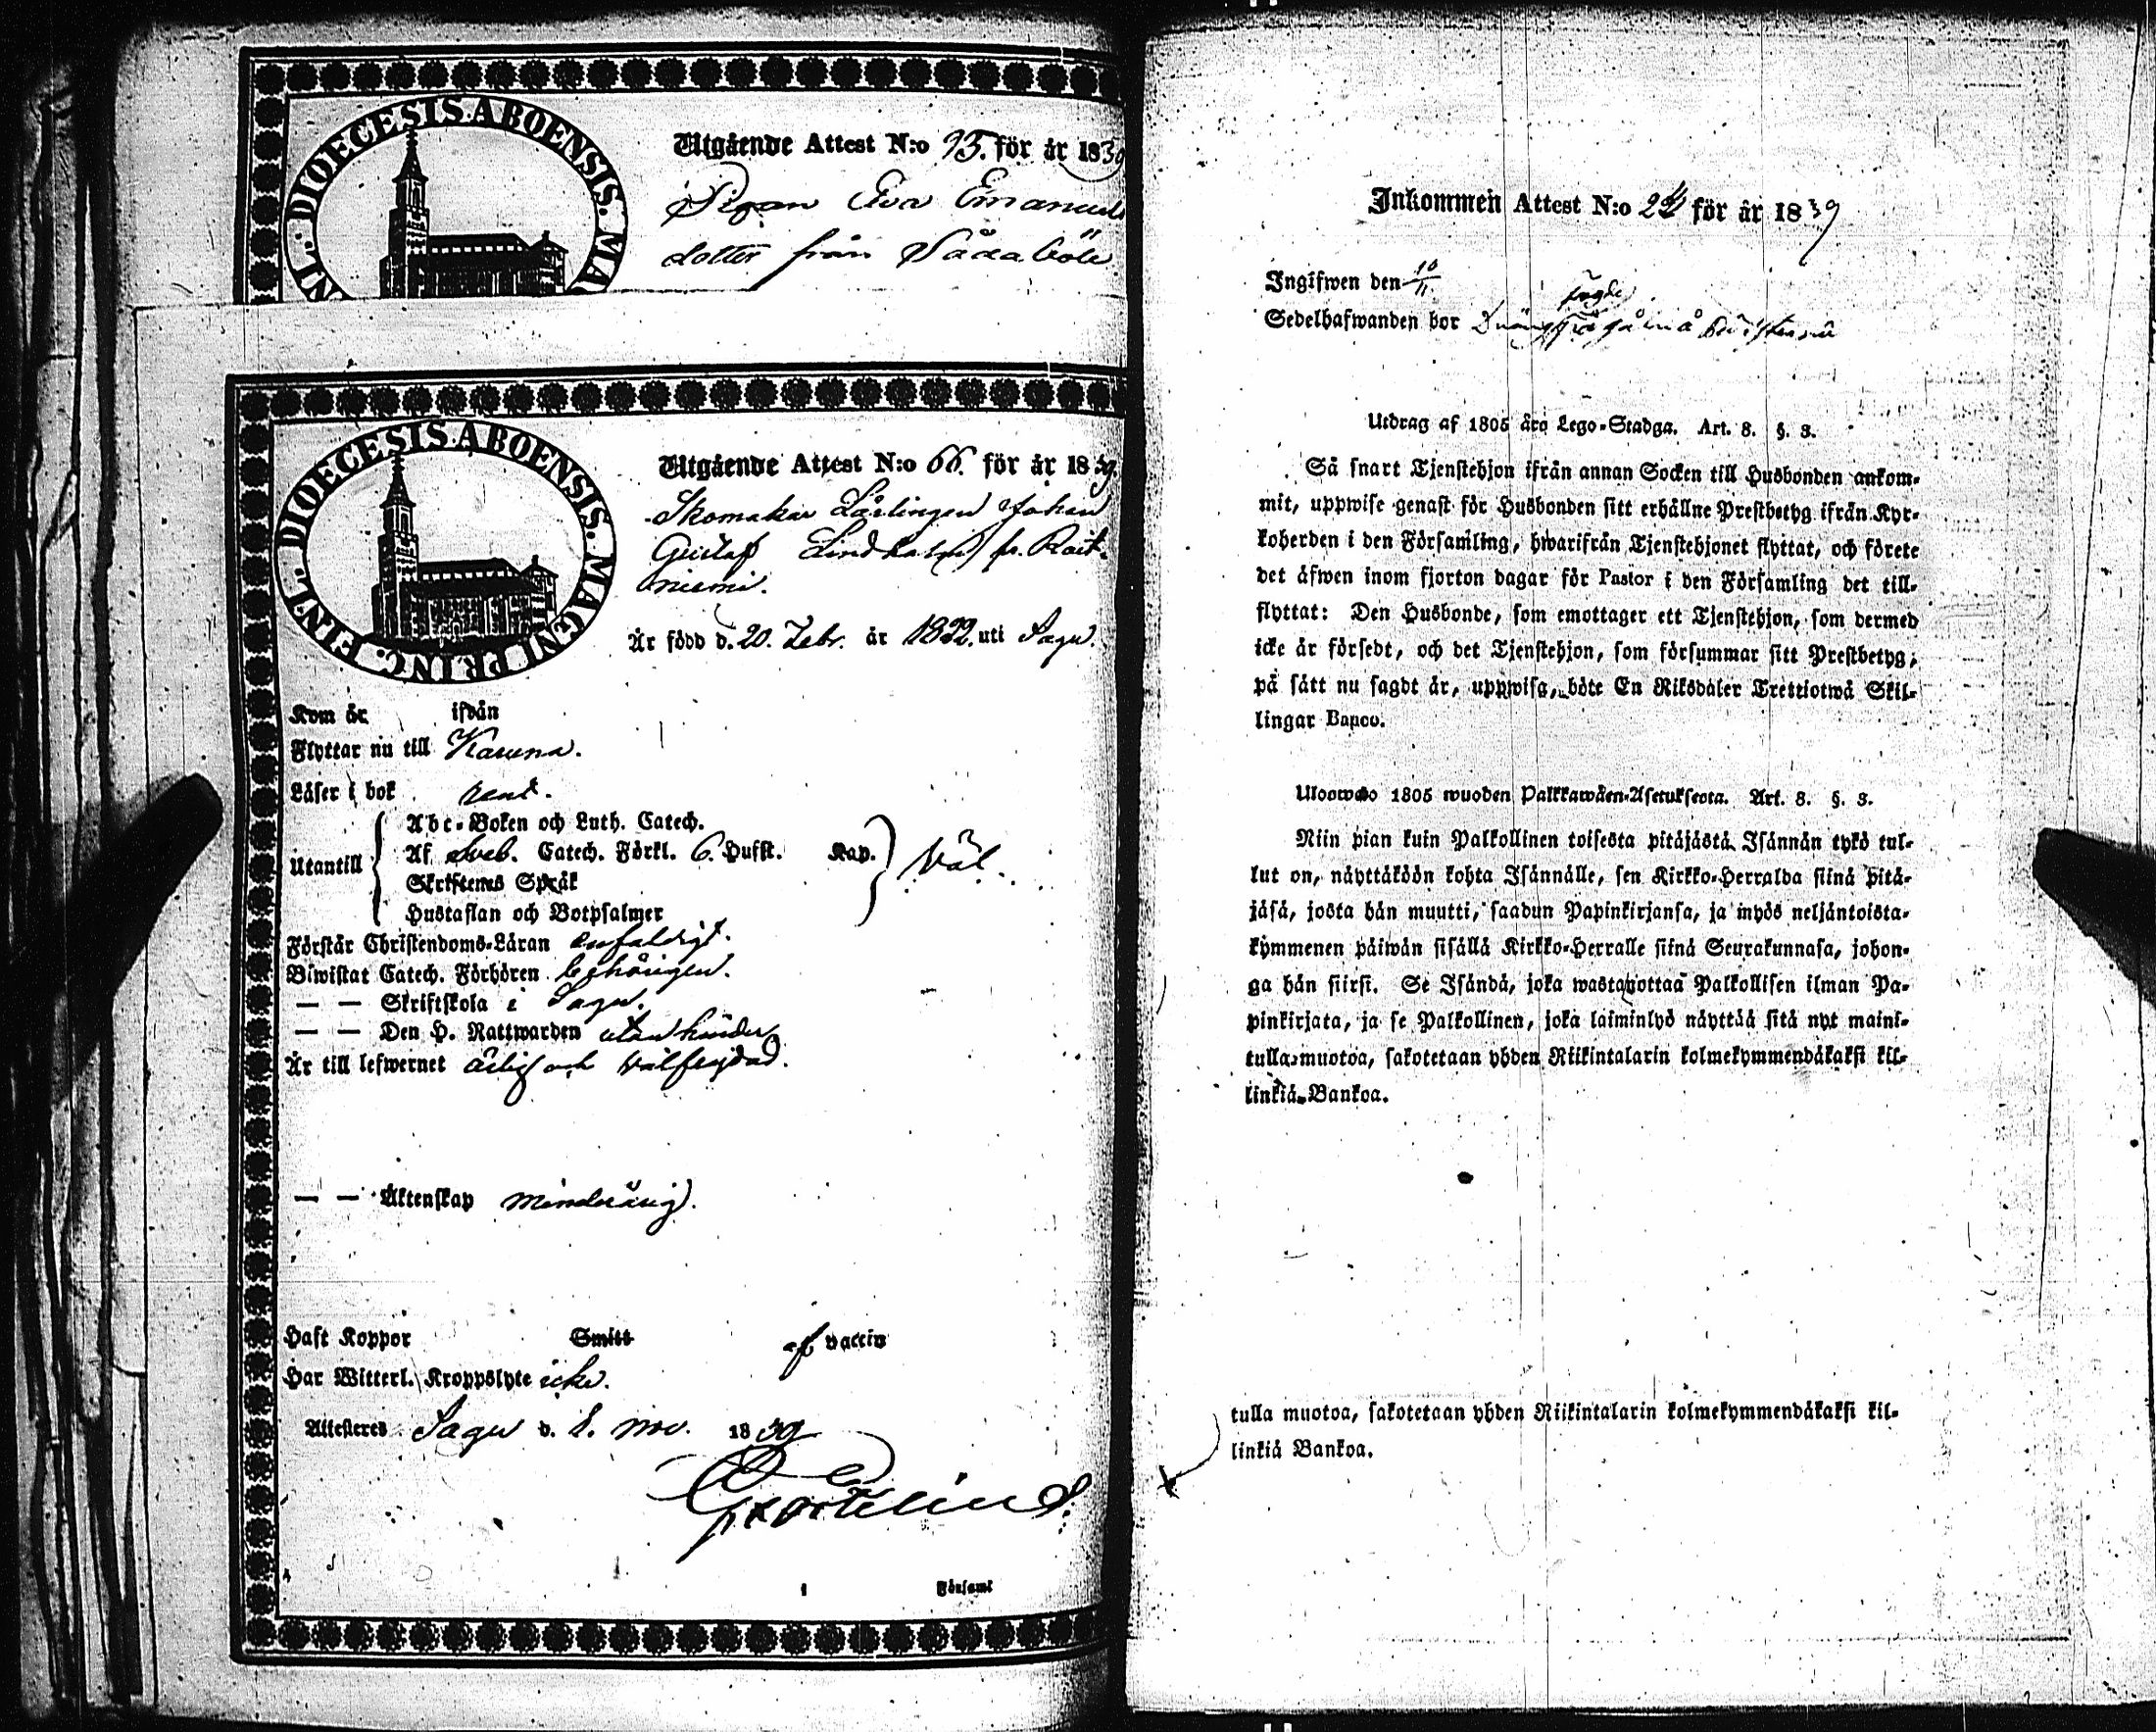 DIOECESIS. ABOENSIS. MA
Utgående Attest N:o 95. för år 1839
Pigan Eva Emanuels
dotter från
DIOECESIS. ABOENSIS. MAGNI PRINC. FINL.
Utgående Attest N:o 66. för år 1839
Skomakar Lärlingen Johan
Gustaf Lindholm fr. Rait-
niemi.
Är född d. 20. Febr. år 1822. uti Sagu.
Kom år ifrån
Flyttar nu till Karuna.
Läser i bok rent.
Abc-Boken och Luth. Catech.
Utantill Af Sveb. Catech. Förkl. 6. Hufst. Kap. Väl.
Skriftenes Språk
Hustaflan och Botpsalmer
Förstår Christendoms-Läran enfaldigt.
Biwistat Catech. Förhören behörigen.
— — Skriftskola i Sagu.
— — Den H. Nattwarden utan hinder
Är till lefwernet ärlig och välfrejdad.
— — Äktenskap minderårig.
Haft Koppor Smitt af vaccin
Har Witterl. Kroppslyte icke.
Attesteres Sagu d. 8. nov. 1839
Församl
Inkommen Attest N:o för år 1839
Ingifwen den 10/11
Sedelhafwanden bor
Utdrag af 1805 års Lego-Stadga. Art. 8. §. 3.
Så snart Tjenstehjon ifrån annan Socken till Husbonden ankom-
mit, uppwise genast för Husbonden sitt erhållne Prestbetyg ifrån Kyr-
koherden i den Församling, hwarifrån Tjenstehjonet flyttat, och förete
det äfwen inom fjorton dagar för Pastor i den Församling det till-
flyttat: Den Husbonde, som emottager ett Tjenstehjon, som dermed
icke är försedt, och det Tjenstehjon, som försummar sitt Prestbetyg,
på sätt nu sagdt är, uppwisa, böte En Riksdaler Trettiotwå Skil-
lingar Banco.
Uloswedo 1805 wuoden Palkkawäen-Asetuksesta. Art. 8. §. 3.
Niin pian kuin Palkollinen toisesta pitäjästä Isännän tykö tul-
lut on, näyttäköön kohta Isännälle, sen Kirkko-Herralda siinä pitä-
jäsä, josta hän muutti, saadun Papinkirjansa, ja myös neljäntoista-
kymmenen päiwän sisällä Kirkko-Herralle siinä Seurakunnasa, johon-
ga hän siirsi. Se Isändä, joka wastaanottaa Palkollisen ilman Pa-
pinkirjata, ja se Palkollinen, joka laiminlyö näyttää sitä nyt maini-
tulla muotoa, sakotetaan yhden Riikintalarin kolmekymmendäkaksi kil-
linkiä Bankoa.
tulla muotoa, sakotetaan yhden Riikintalarin kolmekymmendäkaksi kil-
linkiä Bankoa.